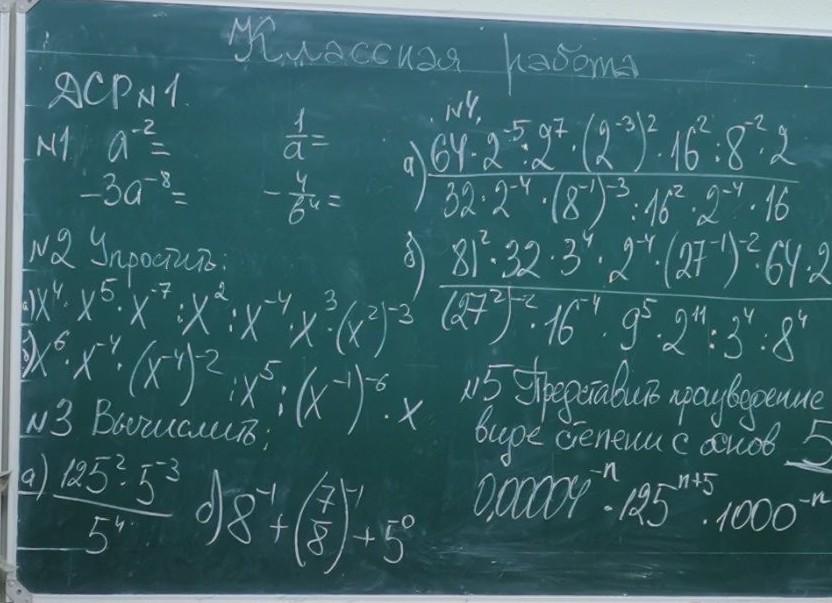 Классная работа
ДСР №1.
№1 a⁻² =
1/a =
-3a⁻⁸ =
- 4/b⁴ =
№2 Упростить:
а) x⁴ · x⁵ · x⁻⁷ : x² : x⁻⁴ · x³ · (x²)⁻³
б) x⁶ · x⁻⁴ · (x⁻⁴)⁻² : x⁵ : (x⁻¹)⁻⁶ · x
№3 Вычислить:
а) 125² · 5⁻³ / 5⁴
б) 8⁻¹ + (7/8)⁻¹ + 5⁰
№4.
а) 64 · 2⁻⁵ : 2⁷ · (2⁻³)² · 16² : 8⁻² · 2
32 · 2⁻⁴ · (8⁻¹)⁻³ : 16² · 2⁻⁴ · 16
б) 81² · 32 · 3⁴ · 2⁻⁴ · (27⁻¹)⁻² · 64 · 2
(27²)⁻² · 16⁻⁴ · 9⁵ · 2¹¹ : 3⁴ : 8⁴
№5 Представить произведение
виде степени с основ 5
0,00004⁻ⁿ · 125ⁿ⁺⁵ · 1000⁻ⁿ